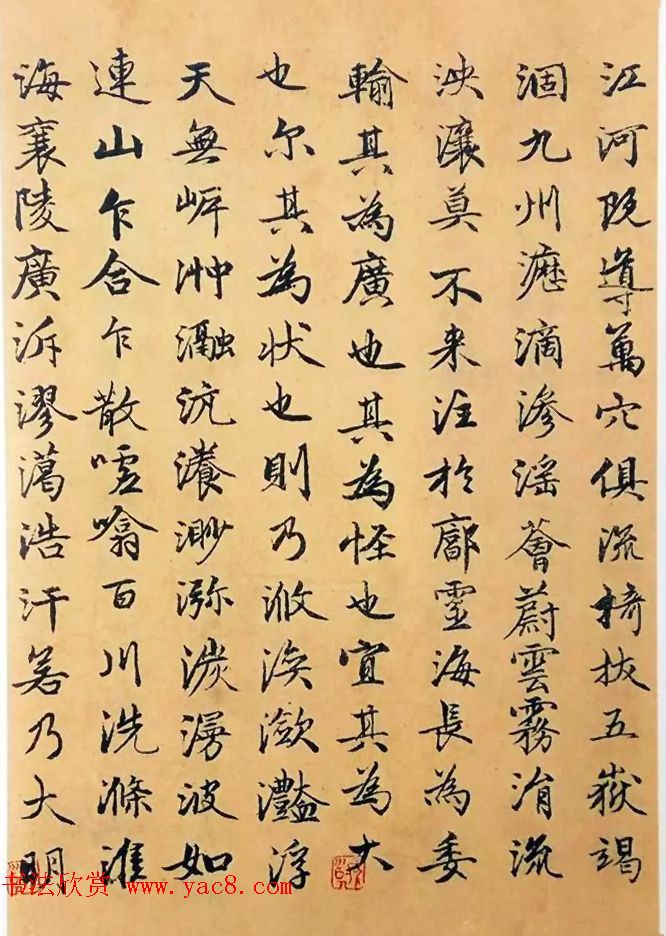 江河既導萬穴俱流掎拔五嶽竭
涸九州瀝滴滲淫薈蔚雲霧涓流
泱瀼莫不来注於廓靈海長為委
輸其為廣也其為怪也宜其為大
也尔其為状也則乃浟湙瀲灩浮
天無岸沖瀜沆瀁渺㳽湠漫波如
連山乍合乍散噓噏百川洗滌淮
海襄陵廣泝漻澫浩汗若乃大明
书法欣赏 www.yac8.com